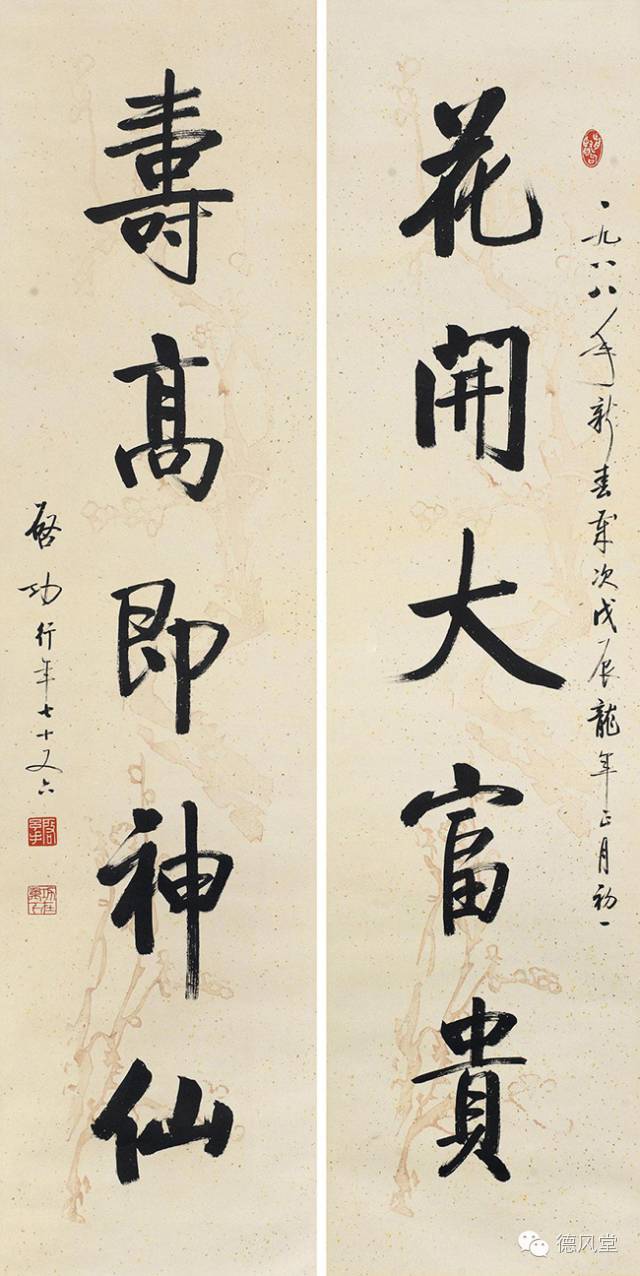 一九八八年新春歲次戊辰龍年正月初一
花開大富貴
壽高即神仙
啓功行年七十又六
德风堂